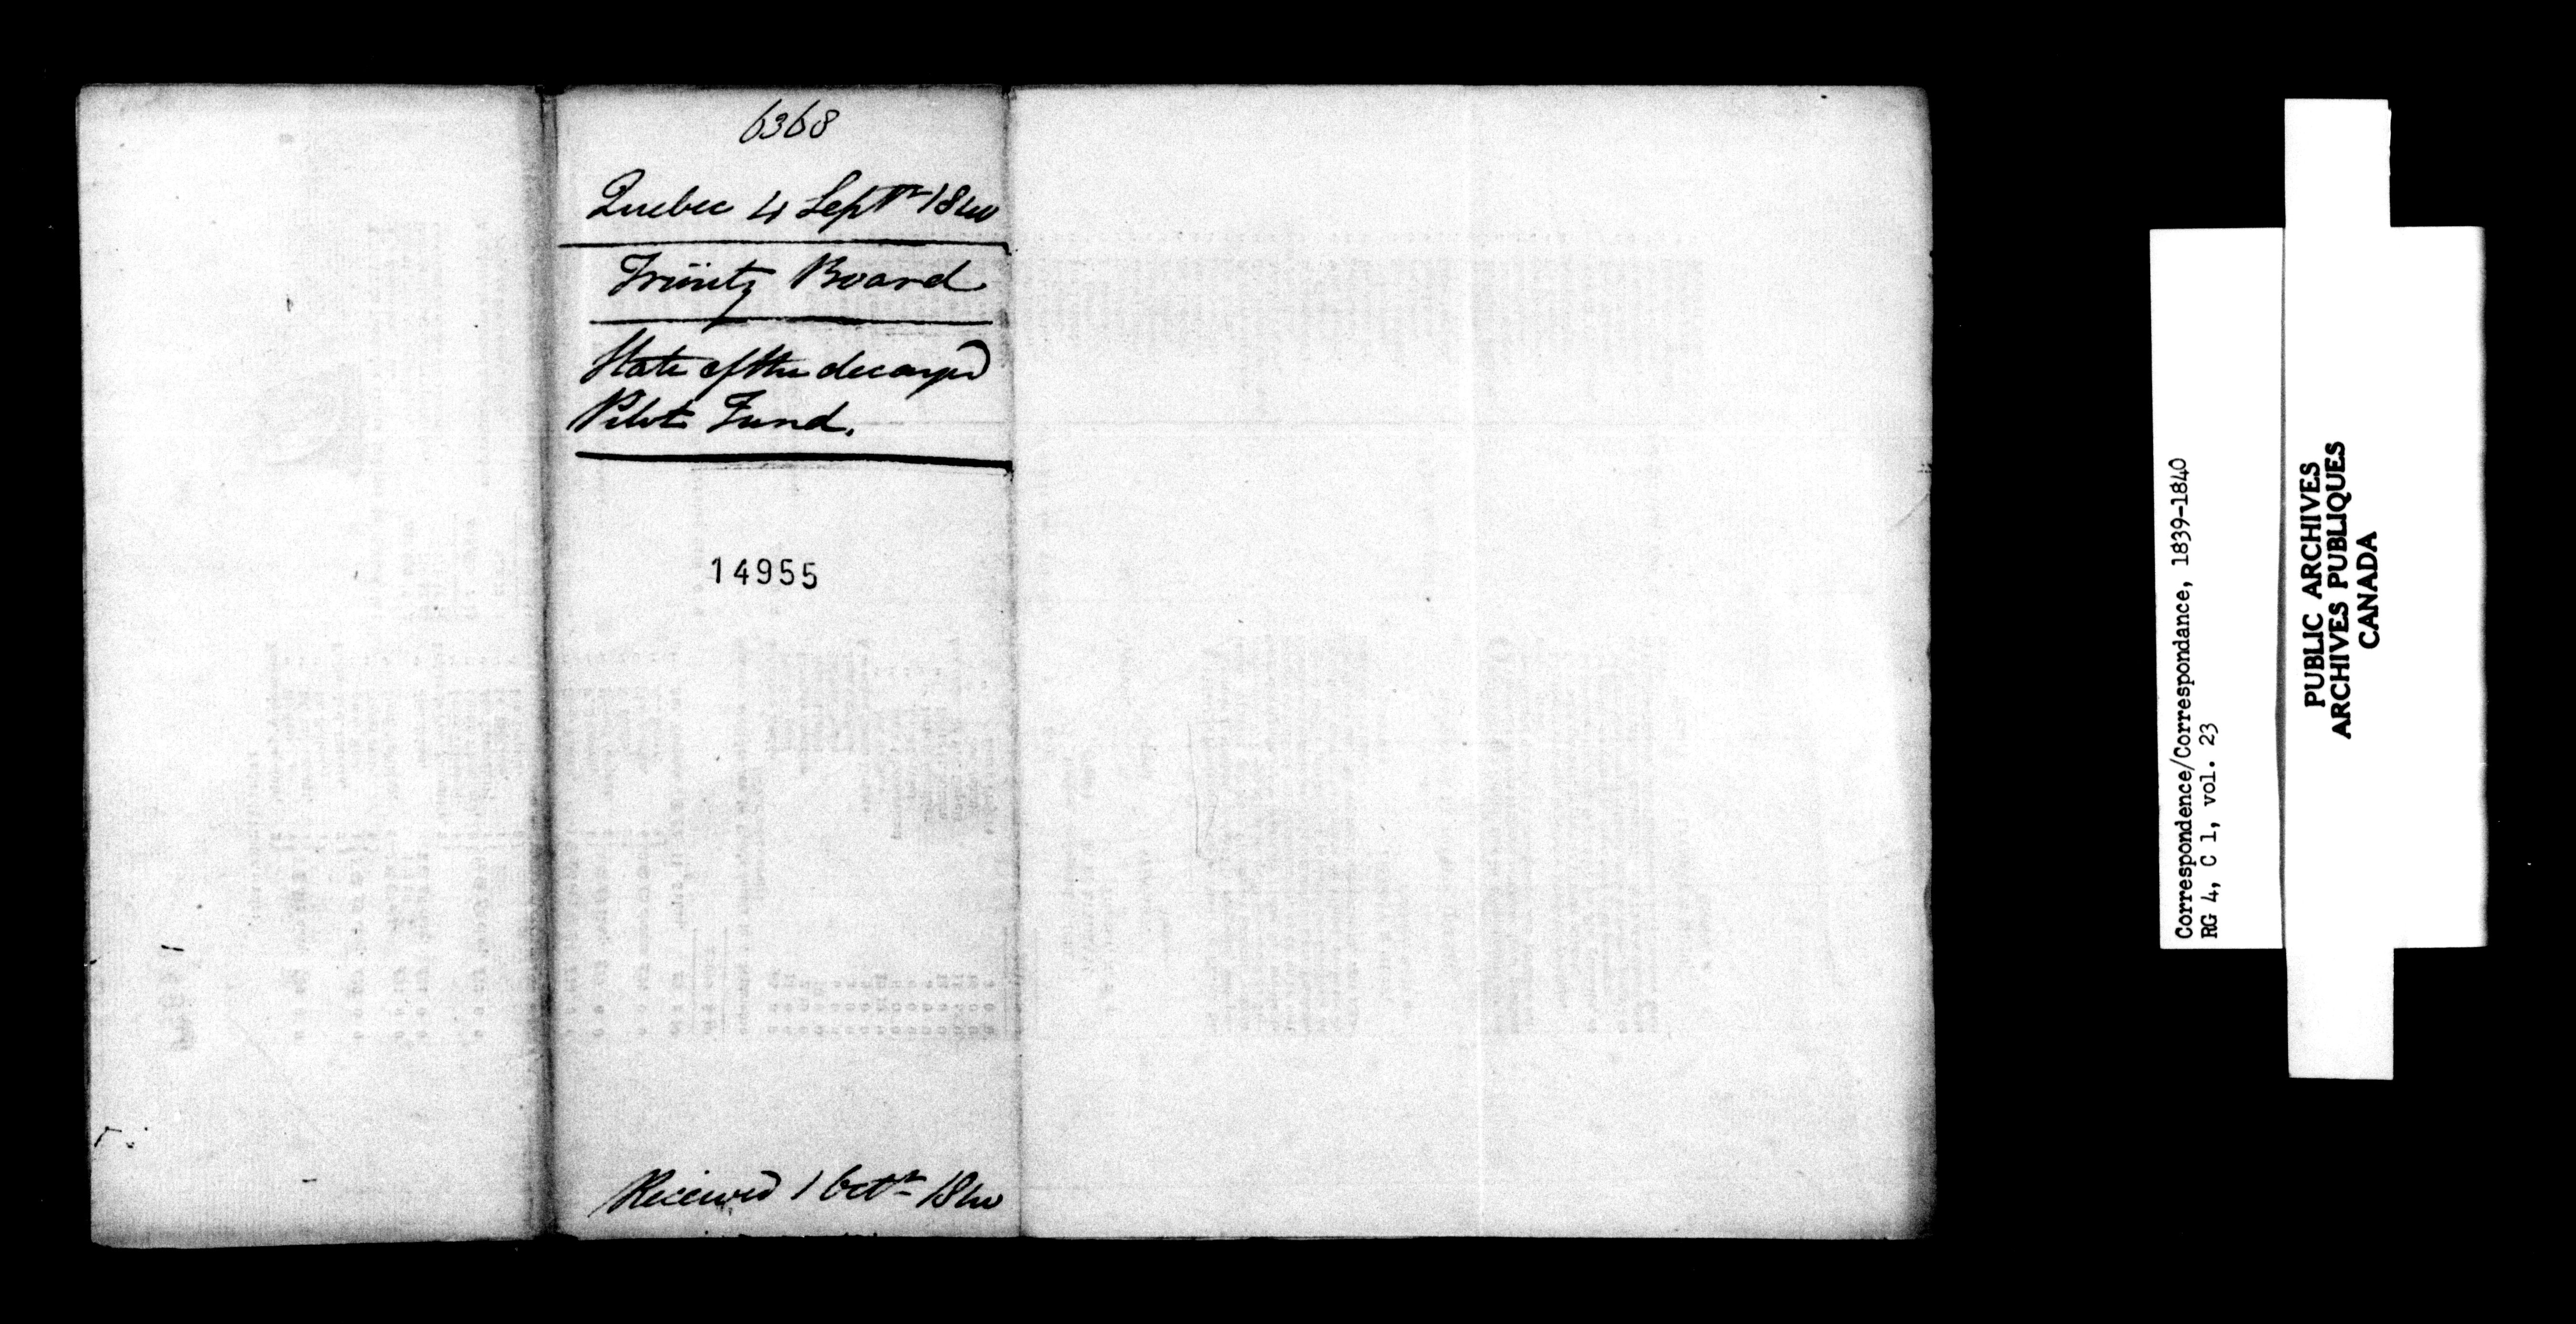 6368
Quebec 4 Septr 1840
Trinity Board
State of the decayed
Pilot Fund.
14955
Received 1 Octr 1840
Correspondence/Correspondance, 1839-1840
RG 4, C 1, vol. 23
PUBLIC ARCHIVES
ARCHIVES PUBLIQUES
CANADA